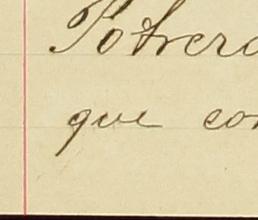 Potrero
que con